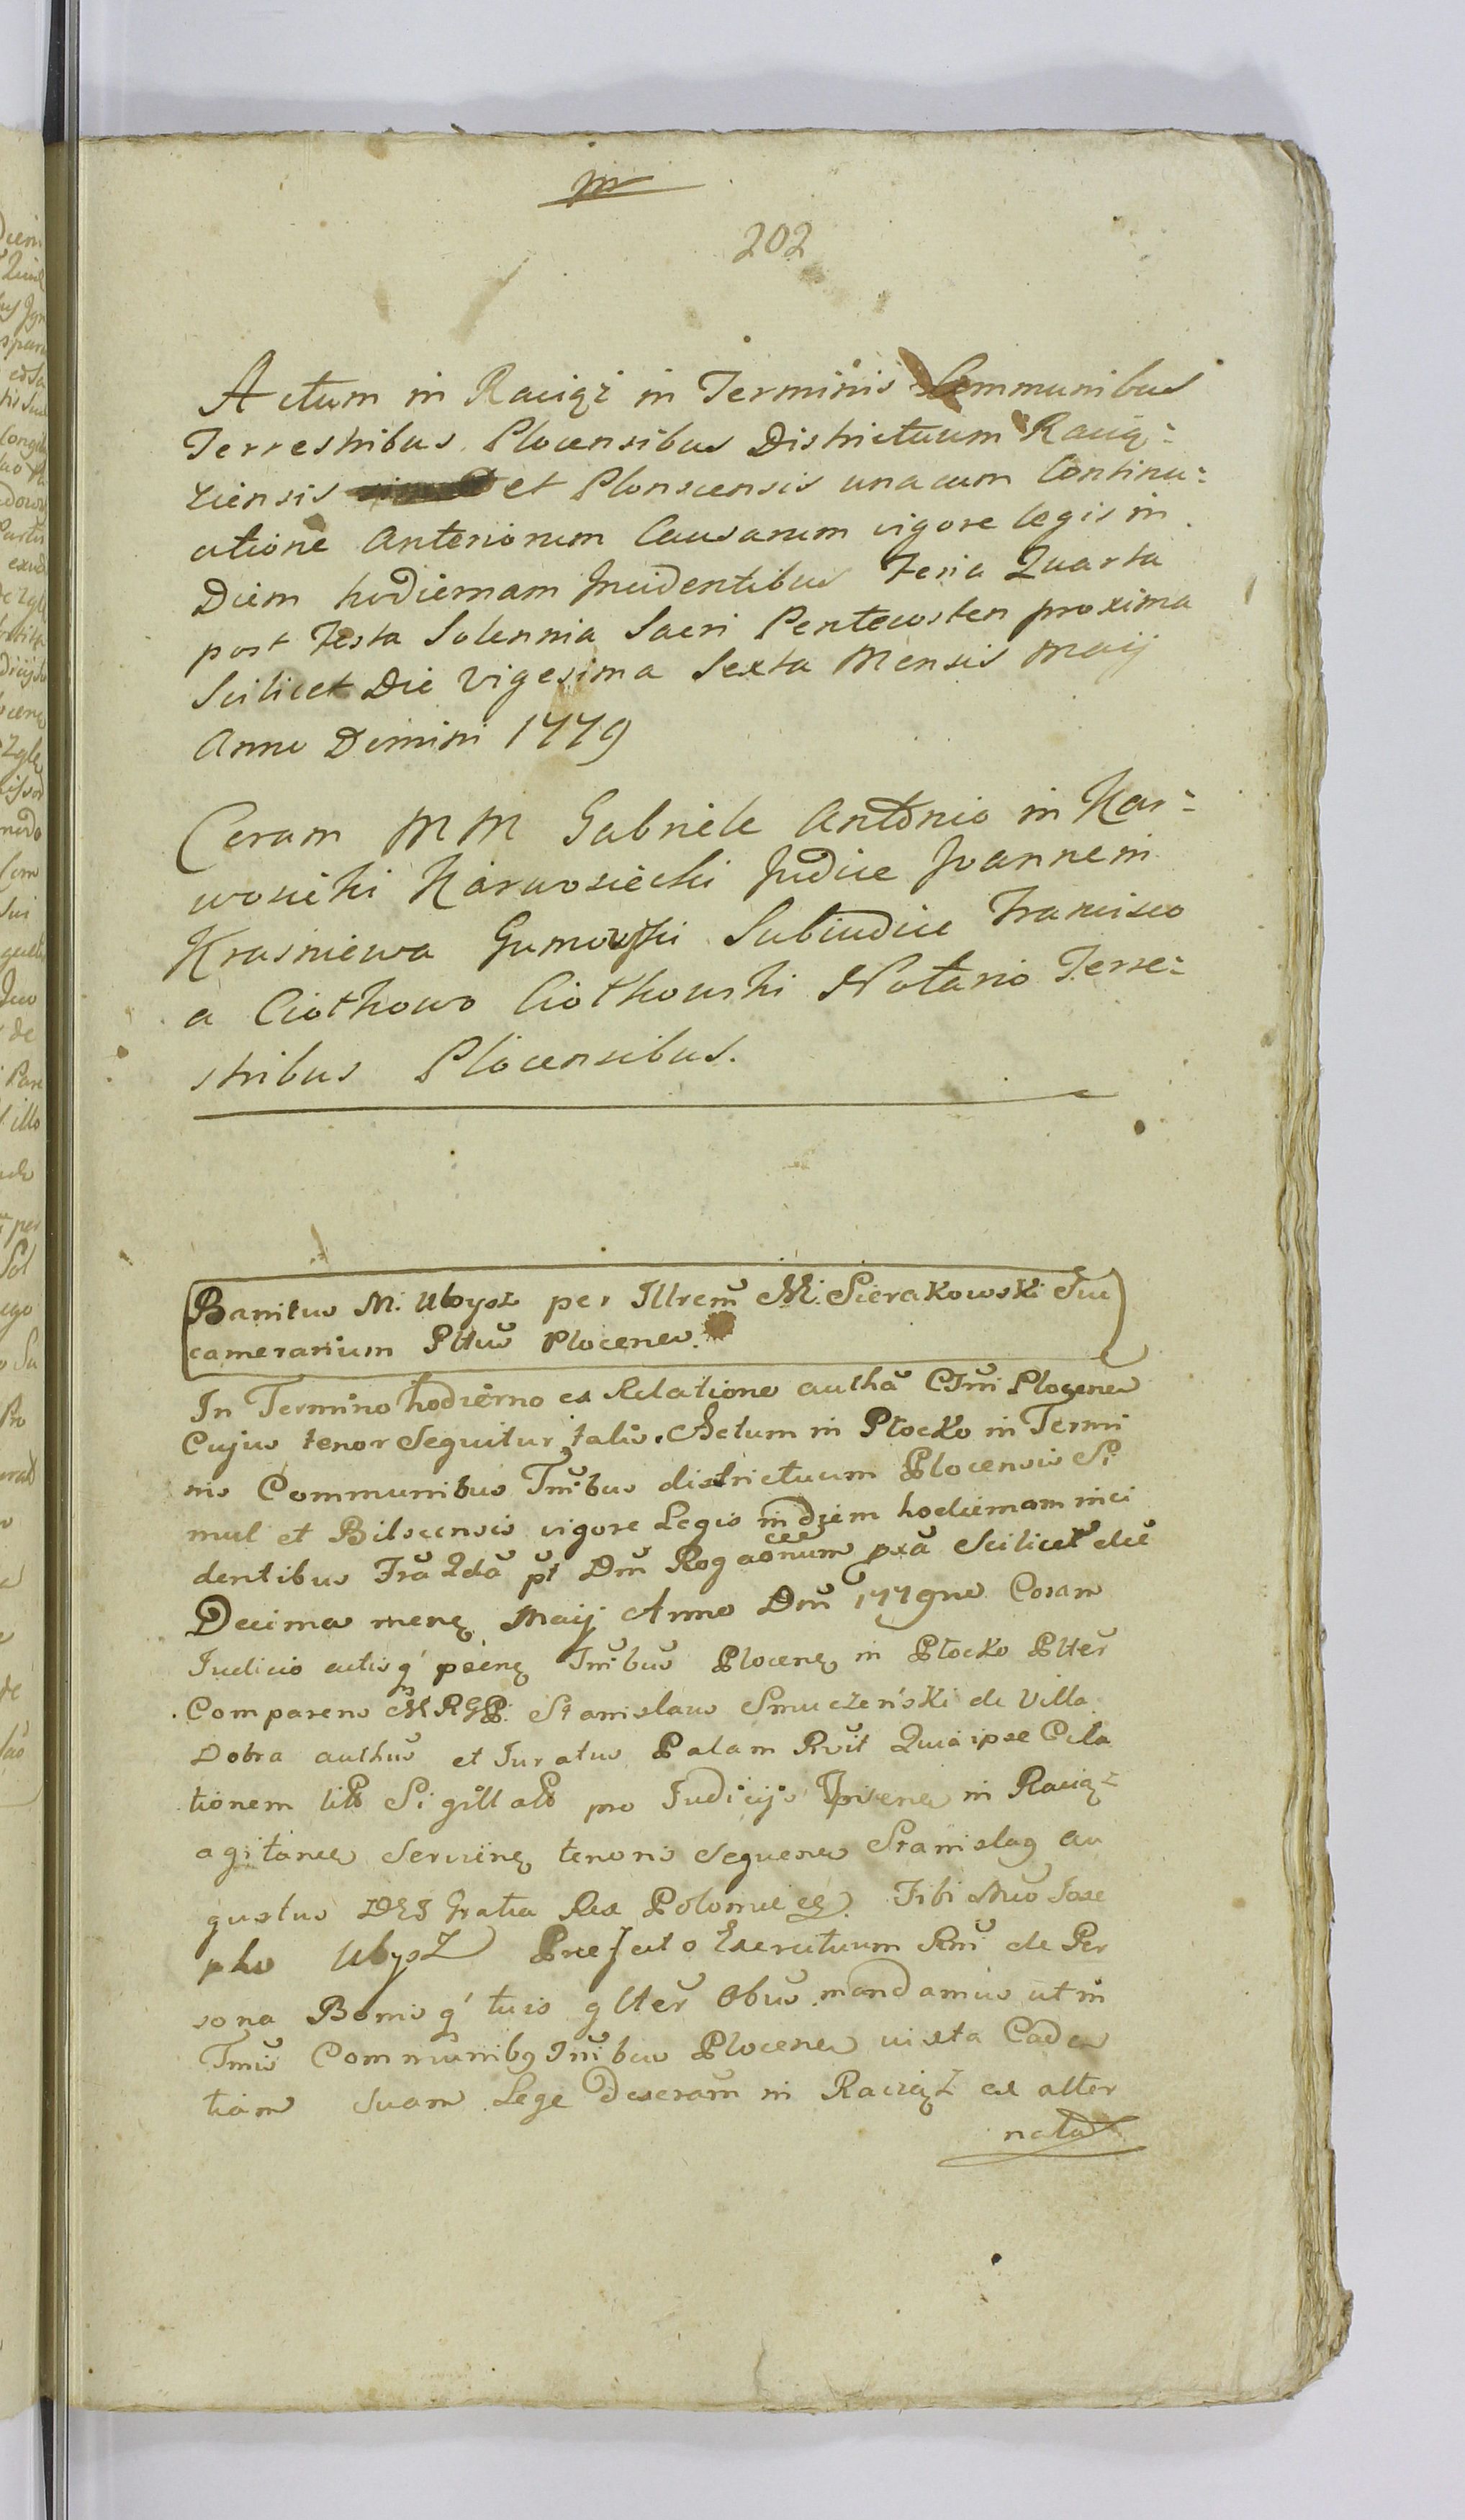 202
Actum in Raciąż in Terminis Communibus
Terrestribus Plocensibus Districtuum Racią-
ziensis et Plonscensis unacum Continu-
atione Anteriorum Causarum vigore legis in
Diem hodiernam Incidentibus Feria Quarta
post Festa Solennia Sacri Pentecosten proxima
Scilicet Die Vigesima Sexta Mensis Maij
Anno Domini 1779
Coram MM Gabriele Antonio in Kar-
wosieki Karwosiecki Judice Joannem
Krasniewa Gumowski Subiudice Francisco
a Ciotkowo Ciotkowski Notario Terre-
stribus Plocensibus.
Banitus M. Ubysz per Illrem M. Sierakowski Suc
camerarium Pltus Plocenes.
In Termino hodierno ex Relatione autha Ctrni Plocenes
Cujus tenor Sequitur talis. Actum in Płocko in Termi
nis Communibus Tribus districtuum Plocensis Si
mul et Bilscensis vigore Legis in diem hodiernam inci
dentibus Fra 2da pt Dm Rogaonum pxa Scilicet die
Decima mens Maij Anno Dni 1779no Coram
Judicio actisq psens Tribus Plocens in Płocko Plter
Comparens MRGP. Stanislaus Smuczeński de Villa
Dobra authus et Juratus Palam Rvit Quia ipse Cita
tionem litt Sigillatt pro Judicijs in Raciąż
agitanes tenoris Sequens Stanislaus au
gustus DEI Gratia Rex Poloniae Tibi Mco Jose
pho Ubysz Praefecto Exercituum Rni de Per
sona Bonisq tuis glter Obus mandamus ut in
Tmis Communibq Tribus Plocenes iuxta Caden
tiam Suam Lege Desexam in Raciąż ex alter
nata